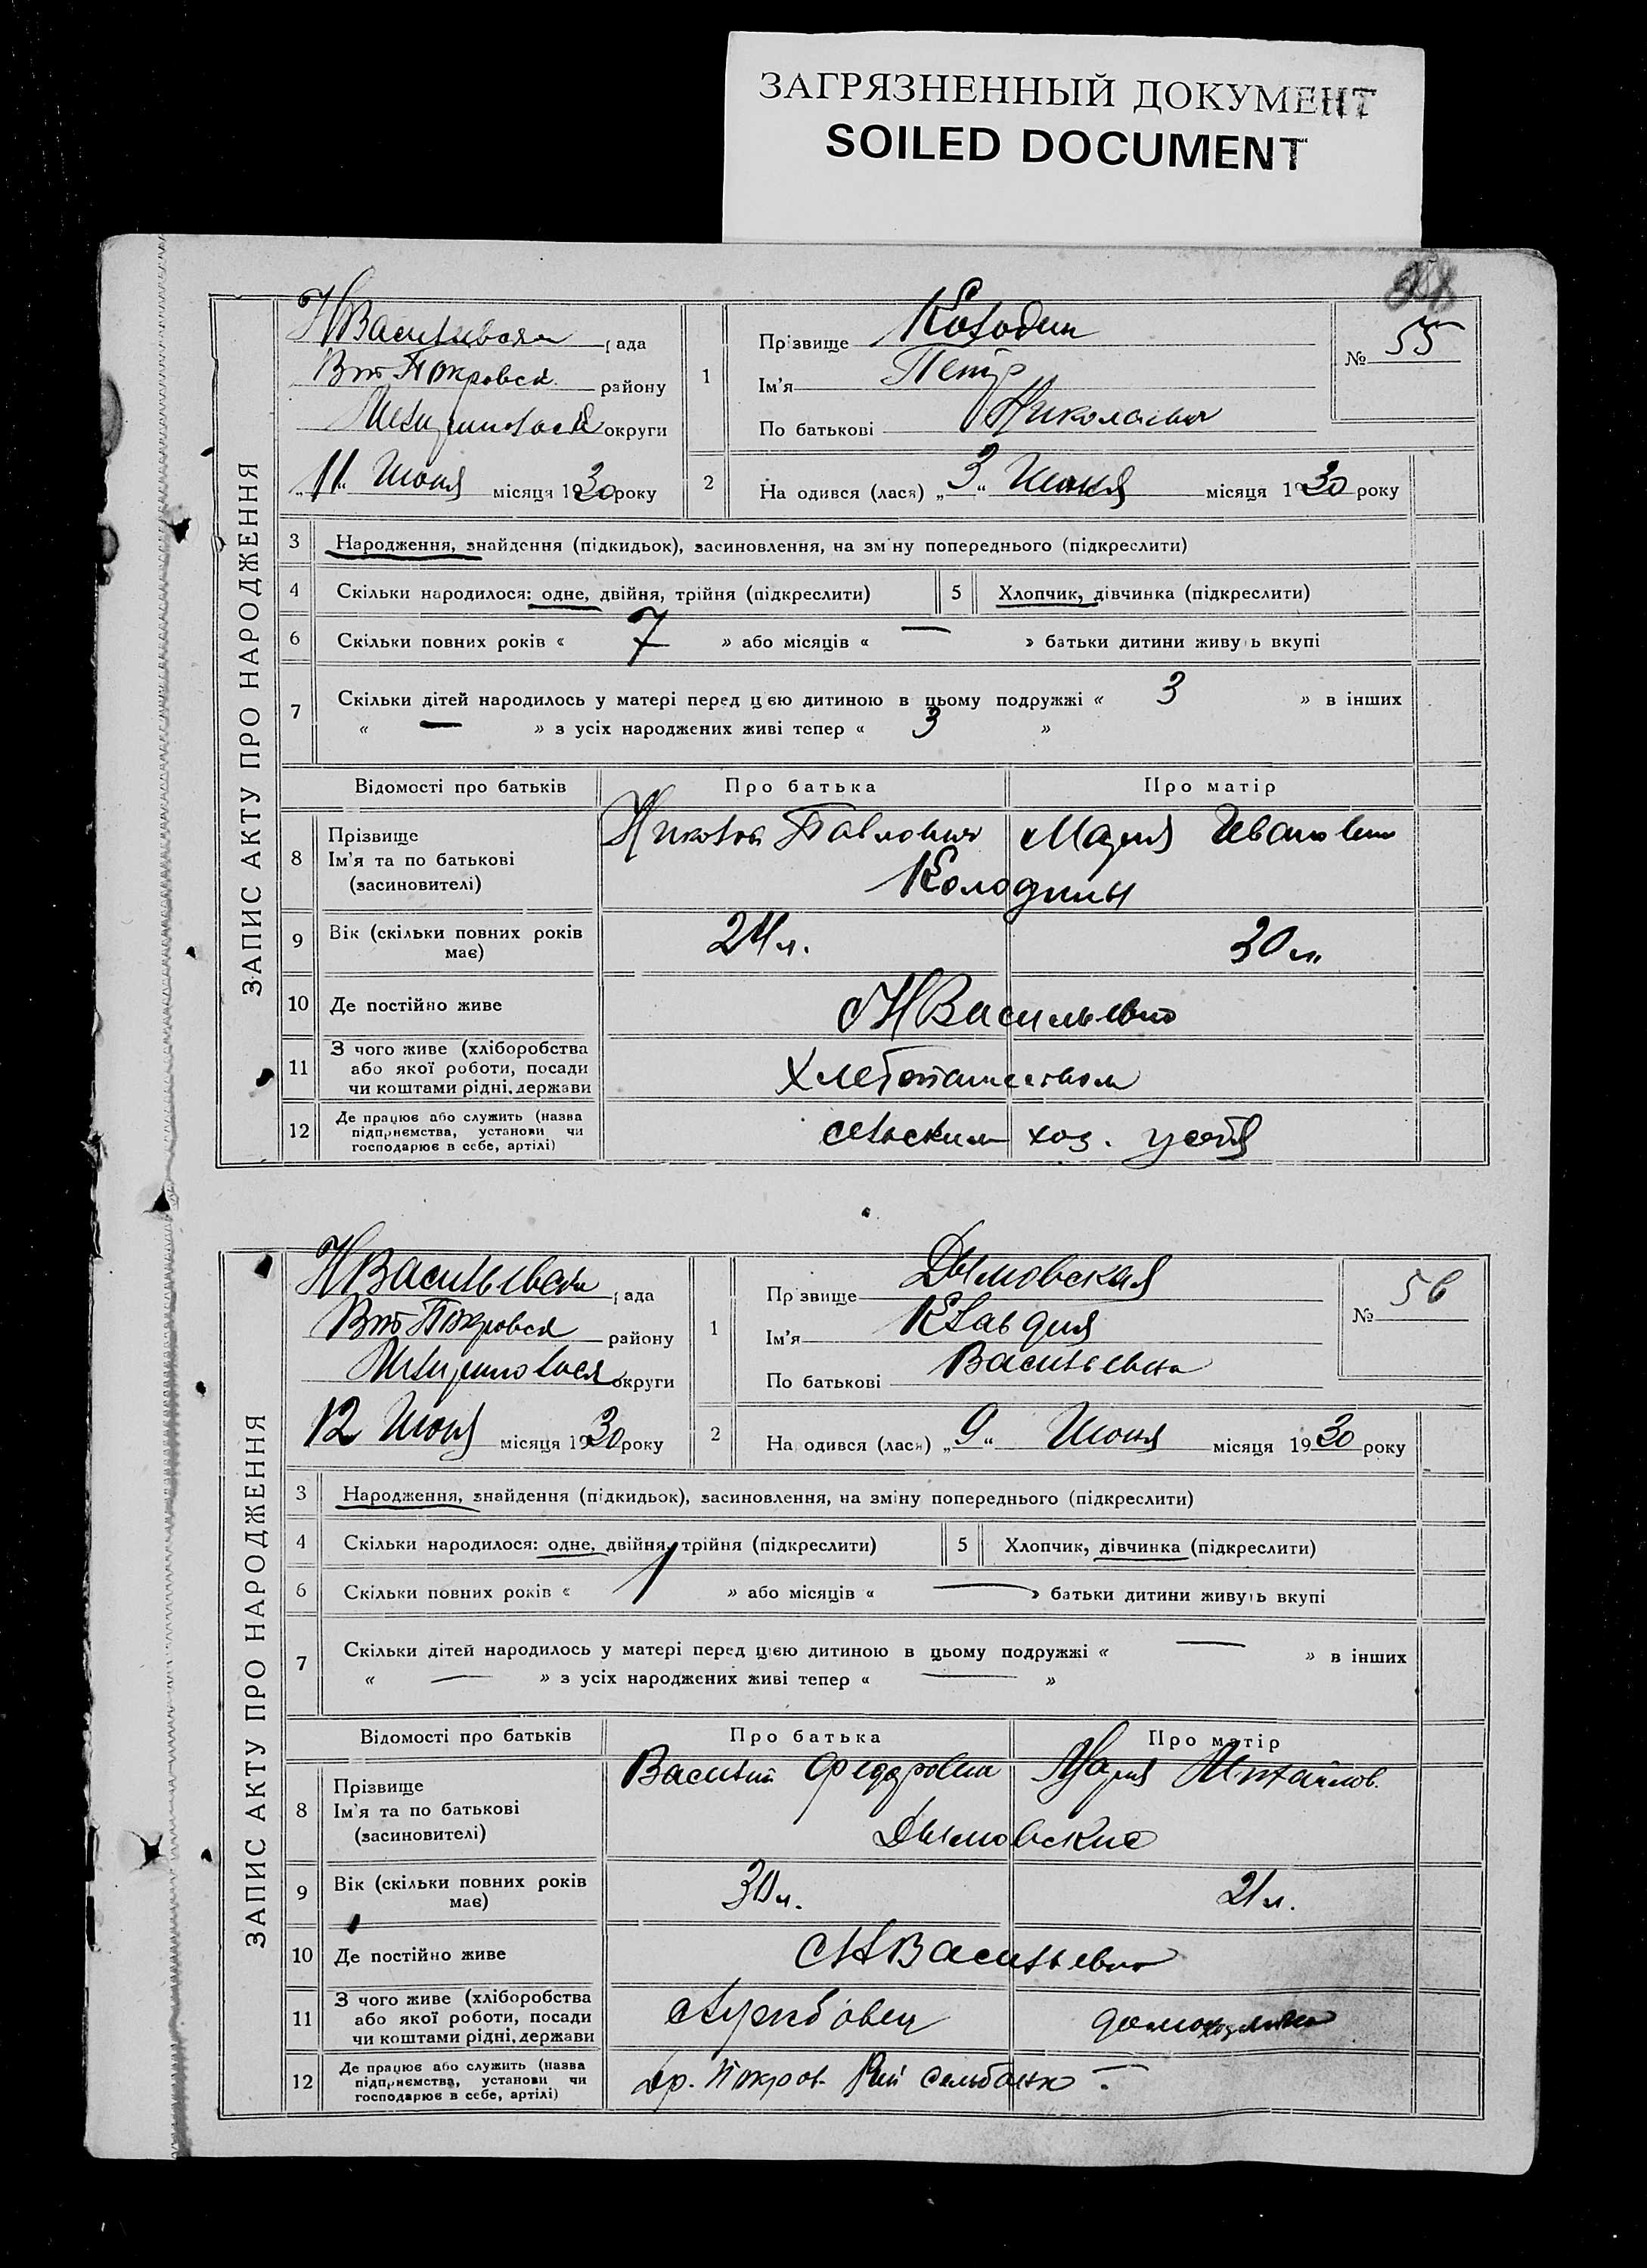 ЗАГРЯЗНЕННЫЙ ДОКУМЕНТ
SOILED DOCUMENT
ЗАПИС АКТУ ПРО НАРОДЖЕННЯ
рада
району
округи
"11" Июня місяця 1930 року
1
Прізвище Колодин
Ім'я Петр
По батькові Николаевич
№ 55
2
Народився (лася) „3“ Июня місяця 1930 року
3 Народження, знайдення (підкидьок), засиновлення, на зміну попереднього (підкреслити)
4 Скільки народилося: одне, двійня, трійня (підкреслити) 5 Хлопчик, дівчинка (підкреслити)
6 Скільки повних років « 7 » або місяців « — » батьки дитини живуть вкупі
7 Скільки дітей народилось у матері перед цією дитиною в цьому подружжі « 3 » в інших
« — » з усіх народжених живі тепер « 3 »
Відомості про батьків Про батька Про матір
8 Прізвище
Ім'я та по батькові
(засиновителі)
Николай Павлович Мария Ивановна
Колодины
9 Вік (скільки повних років має) 24 л. 30 л.
10 Де постійно живе с НВасильевка
11 З чого живе (хліборобства
або якої роботи, посади
чи коштами рідні, держави
Хлебопашеством
12 Де працює або служить (назва
підприємства, установи чи
господарює в себе, артілі)
сельским хоз.
ЗАПИС АКТУ ПРО НАРОДЖЕННЯ
рада
району
округи
12 Июня місяця 1930 року
1
Прізвище Дымовская
Ім'я Клавдия
По батькові Васильевна
№ 56
2
Народився (лася) „9“ Июня місяця 1930 року
3 Народження, знайдення (підкидьок), засиновлення, на зміну попереднього (підкреслити)
4 Скільки народилося: одне, двійня, трійня (підкреслити) 5 Хлопчик, дівчинка (підкреслити)
6 Скільки повних років « 1 » або місяців « — » батьки дитини живуть вкупі
7 Скільки дітей народилось у матері перед цією дитиною в цьому подружжі « — » в інших
« — » з усіх народжених живі тепер « — »
Відомості про батьків Про батька Про матір
8 Прізвище
Ім'я та по батькові
(засиновителі)
Василий Федорович Мария Михайлов.
Дымовские
9 Вік (скільки повних років має) 30 л. 21 л.
10 Де постійно живе с НВасильевка
11 З чого живе (хліборобства
або якої роботи, посади
чи коштами рідні, держави
12 Де працює або служить (назва
підприємства, установи чи
господарює в себе, артілі)